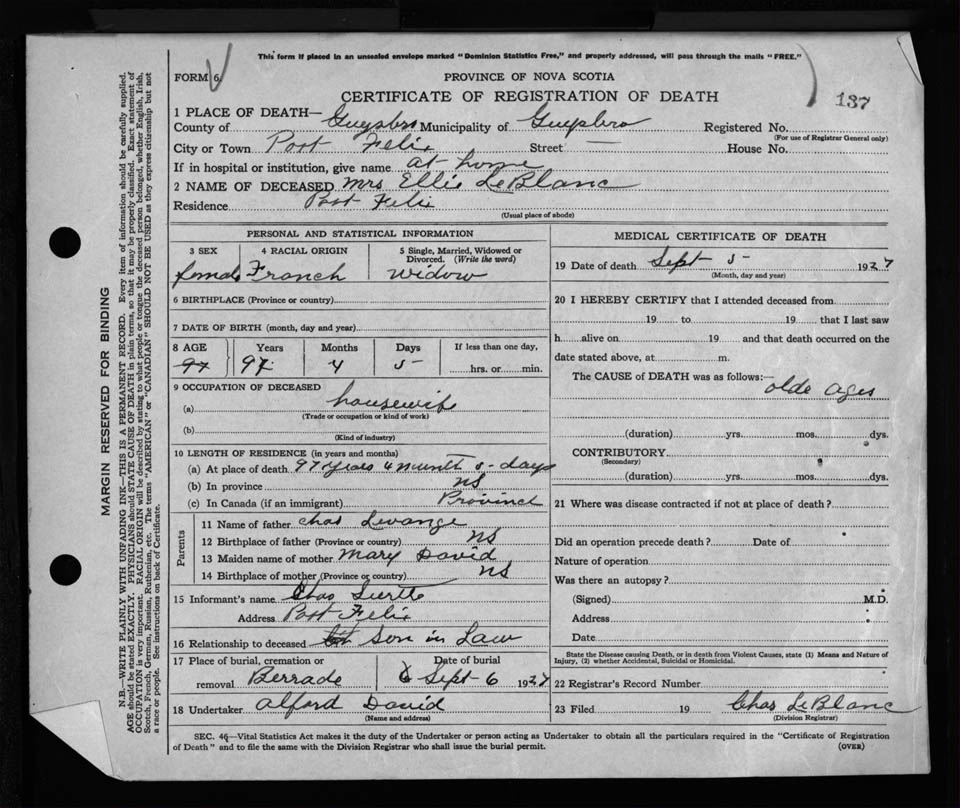 This form if placed in an unsealed envelope marked "Dominion Statistics Free," and properly addressed, will pass through the mails "FREE."
FORM 6
PROVINCE OF NOVA SCOTIA
CERTIFICATE OF REGISTRATION OF DEATH
137
1 PLACE OF DEATH—
County of Guysbro Municipality of Guysbro Registered No.
(For use of Registrar General only)
City or Town Port Felix Street — House No.
If in hospital or institution, give name at home
2 NAME OF DECEASED Mrs Ellis LeBlanc
Residence Port Felix
(Usual place of abode)
PERSONAL AND STATISTICAL INFORMATION
3 SEX 4 RACIAL ORIGIN 5 Single, Married, Widowed or Divorced. (Write the word)
female French widow
6 BIRTHPLACE (Province or country)
7 DATE OF BIRTH (month, day and year)
8 AGE Years Months Days If less than one day,
97 97 4 5 hrs. or min.
9 OCCUPATION OF DECEASED
(a) housewife
(Trade or occupation or kind of work)
(b)
(Kind of industry)
10 LENGTH OF RESIDENCE (in years and months)
(a) At place of death 97 years 4 month 5 days
(b) In province ns
(c) In Canada (if an immigrant) Province
Parents
11 Name of father Chas Levange
12 Birthplace of father (Province or country) NS
13 Maiden name of mother Mary David
14 Birthplace of mother (Province or country) NS
15 Informant's name Chas
Address Port Felix
16 Relationship to deceased Son in Law
17 Place of burial, cremation or removal Berrade Date of burial Sept 6 1937
18 Undertaker Alford David
(Name and address)
MEDICAL CERTIFICATE OF DEATH
19 Date of death Sept 5 - 1937
(Month, day and year)
20 I HEREBY CERTIFY that I attended deceased from
19 to 19 that I last saw
h alive on 19 and that death occurred on the
date stated above, at m.
The CAUSE of DEATH was as follows:—
olde ages
(duration) yrs. mos. dys.
CONTRIBUTORY
(Secondary)
(duration) yrs. mos. dys.
21 Where was disease contracted if not at place of death?
Did an operation precede death? Date of
Nature of operation
Was there an autopsy?
(Signed) M.D.
Address
Date
State the Disease causing Death, or in death from Violent Causes, state (1) Means and Nature of
Injury, (2) whether Accidental, Suicidal or Homicidal.
22 Registrar's Record Number
23 Filed 19 Chas LeBlanc
(Division Registrar)
SEC. 46—Vital Statistics Act makes it the duty of the Undertaker or person acting as Undertaker to obtain all the particulars required in the "Certificate of Registration
of Death" and to file the same with the Division Registrar who shall issue the burial permit. (OVER)
MARGIN RESERVED FOR BINDING
N.B.—WRITE PLAINLY WITH UNFADING INK—THIS IS A PERMANENT RECORD. Every item of information should be carefully supplied.
AGE should be stated EXACTLY. PHYSICIANS should STATE CAUSE OF DEATH in plain terms, so that it may be properly classified. Exact statement of
OCCUPATION is very important. RACIAL ORIGIN will be described by stating to what people or tongue the deceased person belonged, whether English, Irish,
Scotch, French, German, Russian, Ruthenian, etc. The terms "AMERICAN" or "CANADIAN" SHOULD NOT BE USED as they express citizenship but not
a race or people. See instructions on back of Certificate.